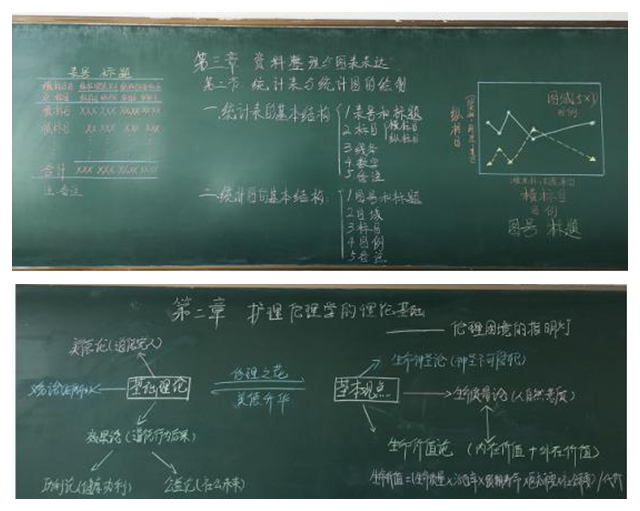 第三章 资料整理与图表表达
第二节 统计表与统计图的绘制
表号 标题
横标目
XXX XXX XXX XXX XXX
横标目 XX XX XX XX XX
合计 XXX XXX XXX XXX XXX
注:备注
一.统计表的基本结构
1 表号和标题
2 标目
横标目
纵标目
3 线条
4 数字
5 备注
二.统计图的基本结构:
1 图号和标题
2 图域
3 标目
4 图例
5
纵标目
图域
图例
横标目
图例
图号 标题
第二章 护理伦理学的理论基础
—— 伦理困境的指明灯
美德论(道德完人)
基础理论
效果论(道德行为后果)
功利论(健康功利)
公益论
伦理之花
美德升华
基本观点
生命神圣论(神圣不可侵犯)
生命质量论(人自然素质)
生命价值论 (内在价值+外在价值)
生命价值=(生命质量×治愈率×